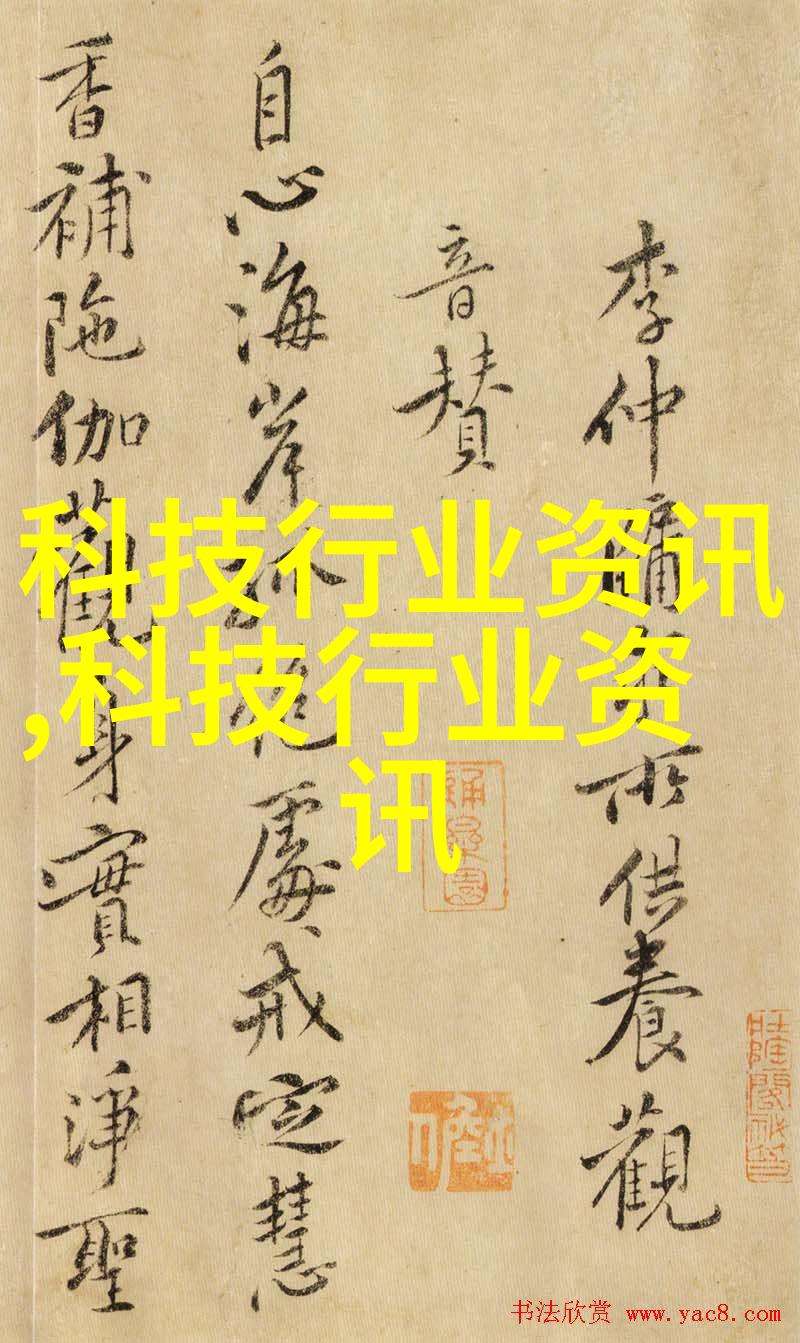 李仲牖所供養觀
音賛
自心海岸孤絶處戒定慧
香補陁伽觀身實相淨聖
科技行业资讯
,科技行业资
讯
书法欣赏 www.yac8.com